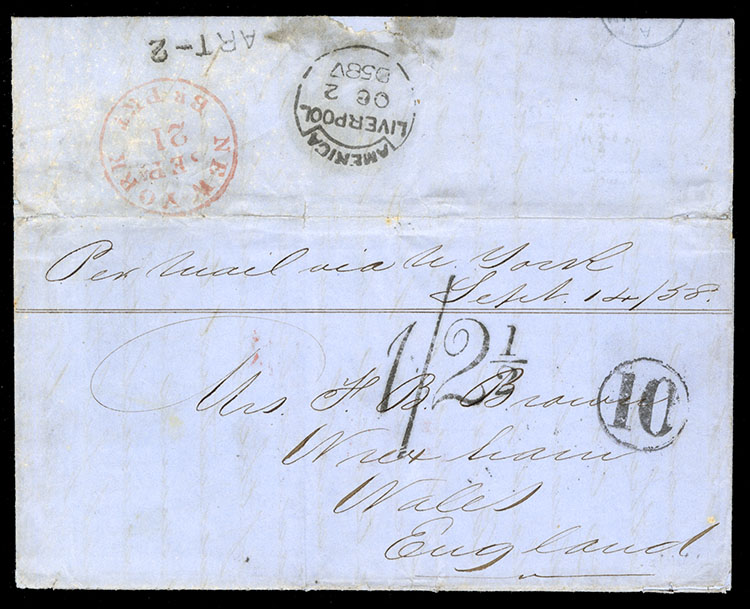 ART-2
NEW YORK
SEP
21
Br PKT
AMERICA
LIVERPOOL
OC 2
58
Per Mail via N York
Sept. 14/58.
1/2½
10
Mrs. F. B. Brown
Wrexham
Wales
England